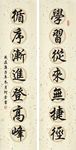 學習從來無捷徑
循序漸進登高峰